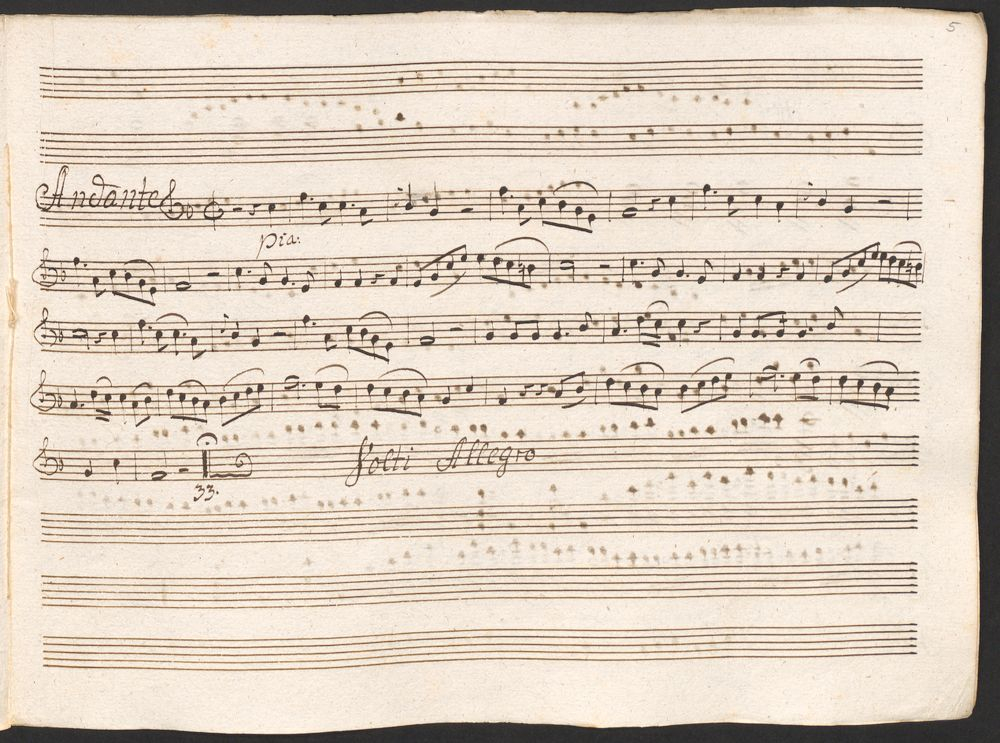 5
Andante
pia:
33.
Volti Allegro